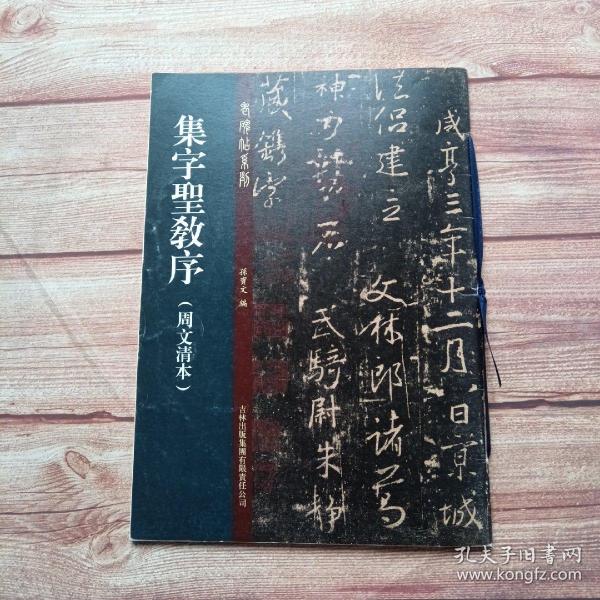 集字聖教序
（周文清本）
老碑帖系列
孫寶文 編
吉林出版集團有限責任公司
咸亨三年十二月八日京城
法侶建立 文林郎諸葛
神力勒石 武騎尉朱静
藏鐫字
孔夫子旧书网
www.kongfz.com